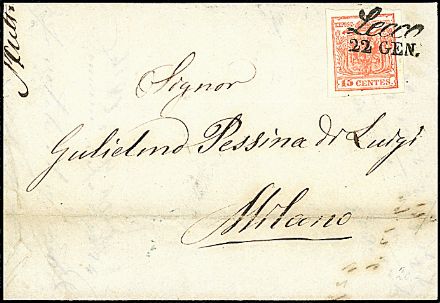 Lecco
22 GEN.
15 CENTES
Signor
Gulielmo Pessina di Luigi
Milano